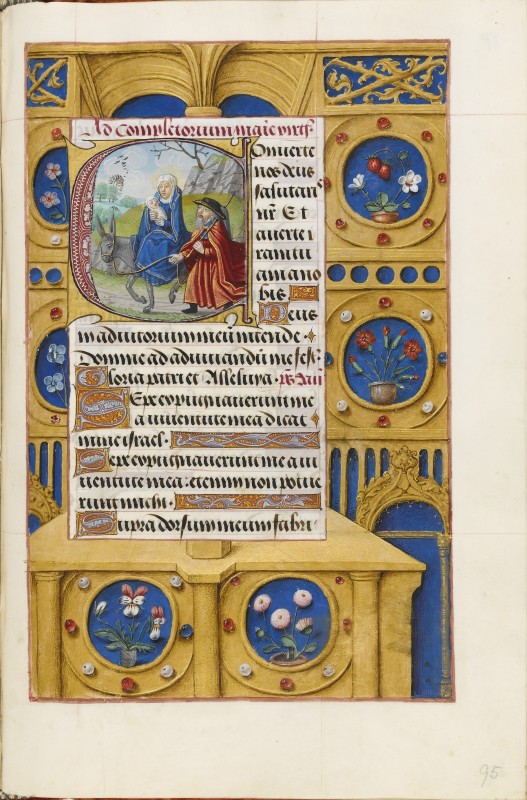 Ad completorium marie virgĩs
Conuerte
nos deus
salutaris
nr̃ Et
auerte i
ram tu
am a no
bis Deus
in adiutorium meũ intende
Domine ad adiuuandũ me fest
Gloria patri et Alleluya
Sepe expugnauerunt me
a iuuentute mea dicat
nunc israel
Sepe expugnauerunt me a iu
uentute mea: etenim non potue
runt michi
Supra dorsum meum fabri
95